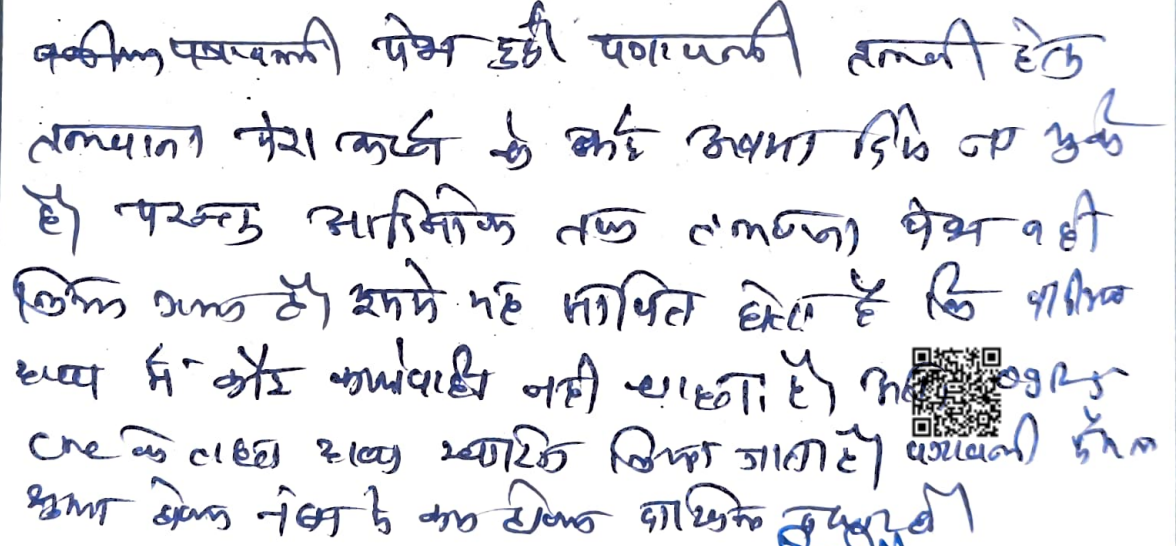 वकील पत्रावली पेश हुई। पत्रावली तलबी हेतु
तलवाना पेश करने के कई अवसर दिये जा चुके
है। परन्तु आदिनांक तक तलवाना पेश नही
किया गया है। इससे यह साबित होता है कि प्रार्थीया
वाद में कोई कार्यवाही नही चाहता है। अतः
CPC के तहत वाद खारिज किया जाता है। पत्रावली फैसल
शुमार होकर नंबर से कम होकर दाखिल दफ्तर हो।